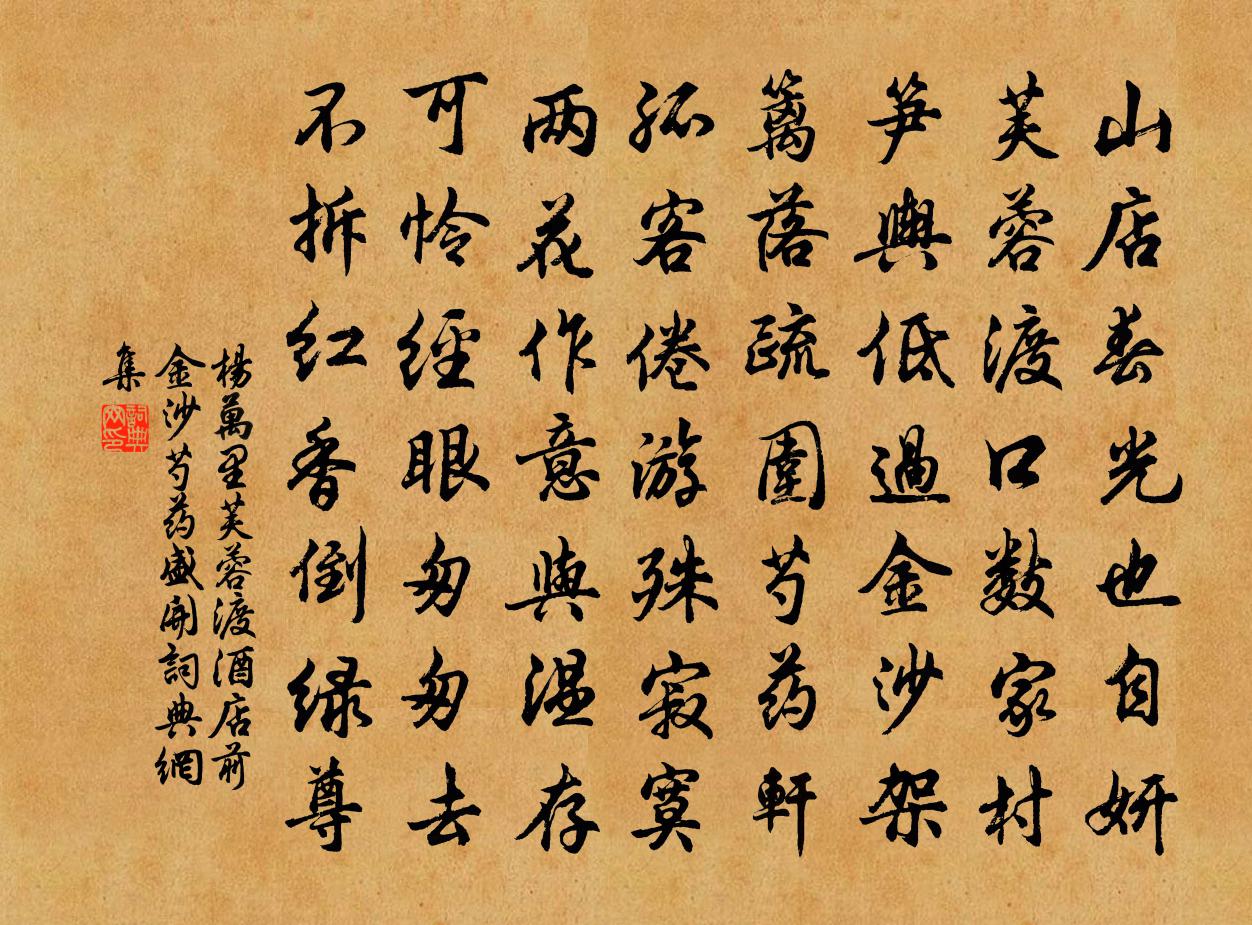 山店春光也自妍
芙蓉渡口数家村
笋輿低過金沙架
籬落疏圍芍药軒
孤客倦游殊寂寞
两花作意與温存
可怜經眼匆匆去
不拆红香倒绿尊
楊萬里芙蓉渡酒店前
金沙芍药盛開詞典網
集
詞典網印